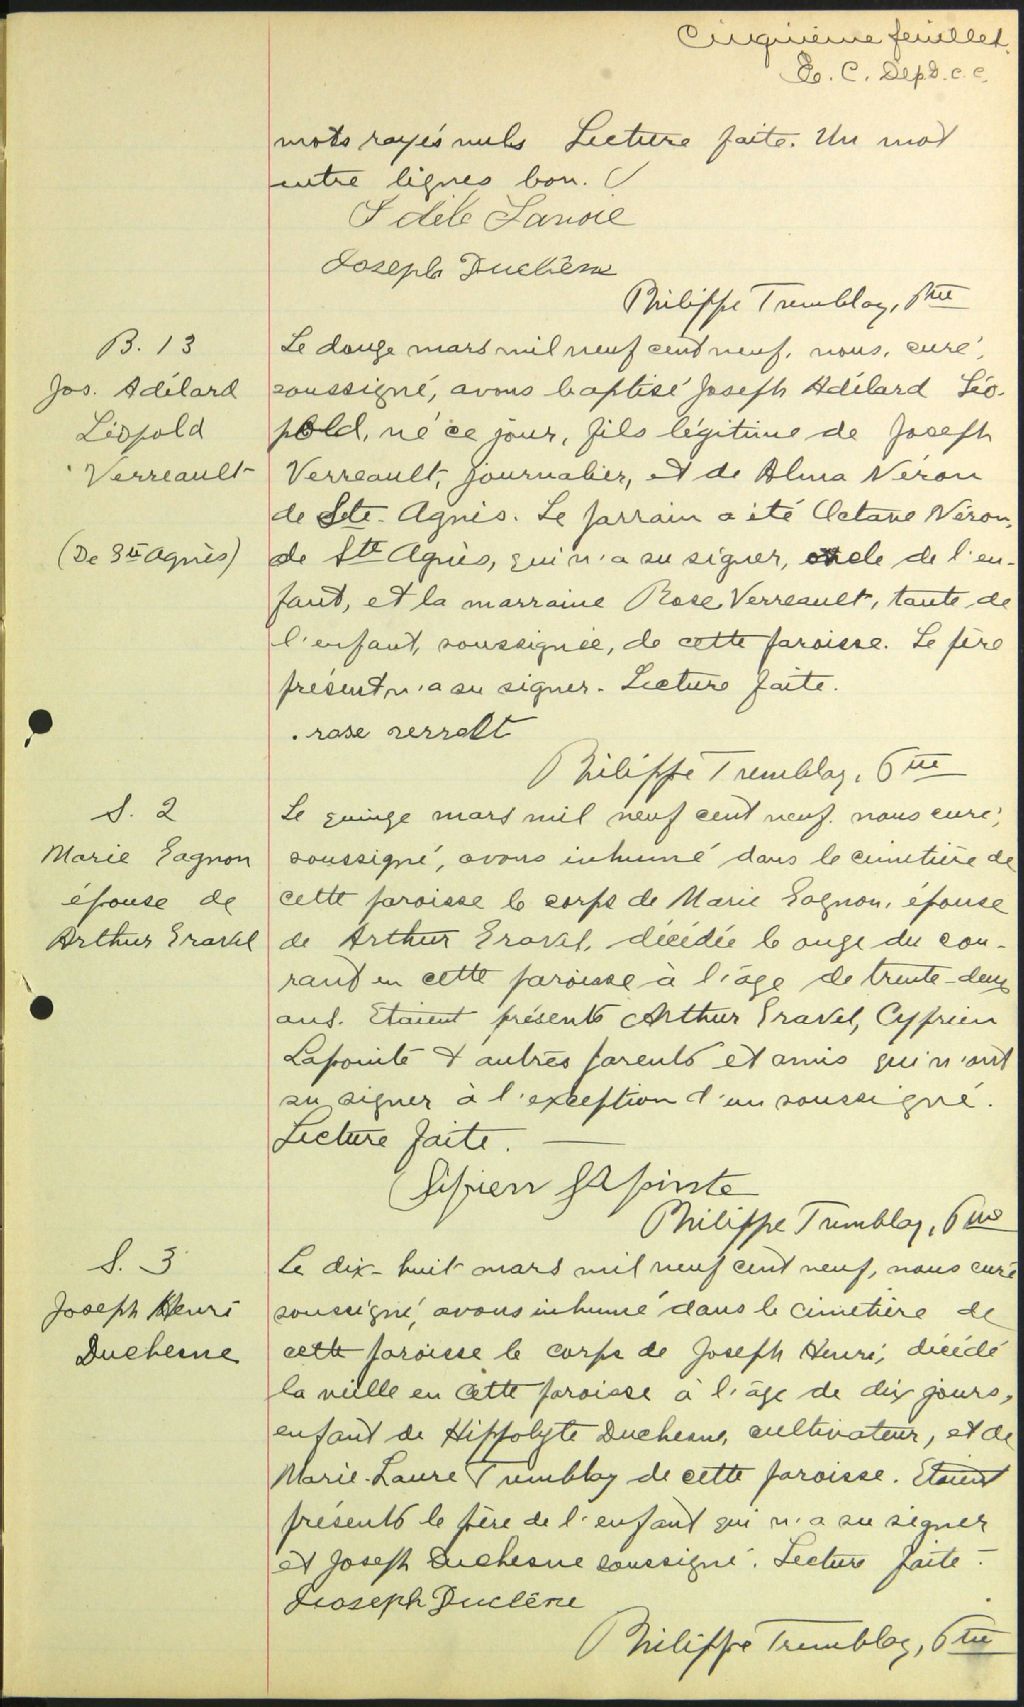 Cinquième feuillet.
E. C. Dep. D. c. c.
mots rayés nuls Lecture faite. Un mot
entre lignes bon.
Fidèle Lavoie
Joseph Duchêne
Philippe Tremblay, Ptre
B. 13
Jos. Adélard
Léopold
Verreault
(De Ste Agnès)
Le douze mars mil neuf cent neuf, nous, curé,
soussigné, avons baptisé Joseph Adélard Léo-
pold, né ce jour, fils légitime de Joseph
Verreault, journalier, et de Alma Néron
de Ste. Agnès. Le parrain a été Octave Néron,
de Ste Agnès, qui n'a su signer, oncle de l'en-
fant, et la marraine Rose Verreault, tante de
l'enfant, soussignée, de cette paroisse. Le père
présent n'a su signer. Lecture faite.
rose verrolt
Philippe Tremblay, Ptre
S. 2
Marie Gagnon
épouse de
Arthur Gravel
Le quinze mars mil neuf cent neuf, nous curé,
soussigné, avons inhumé dans le cimetière de
cette paroisse le corps de Marie Gagnon, épouse
de Arthur Gravel, décédée le onze du cou-
rant en cette paroisse à l'âge de trente-deux
ans. Etaient présents Arthur Gravel, Cyprien
Lapointe & autres parents et amis qui n'ont
su signer à l'exception d'un soussigné.
Lecture faite.
Sipien Lapointe
Philippe Tremblay, Ptre
S. 3
Joseph Henri
Duchesne
Le dix-huit mars mil neuf cent neuf, nous curé
soussigné, avons inhumé dans le cimetière de
cette paroisse le corps de Joseph Henri, décédé
la veille en cette paroisse à l'âge de dix jours,
enfant de Hippolyte Duchesne, cultivateur, et de
Marie-Laure Tremblay de cette paroisse. Etaient
présents le père de l'enfant qui n'a su signer
et Joseph Duchesne soussigné. Lecture faite.
Joseph Duclêne
Philippe Tremblay, Ptre